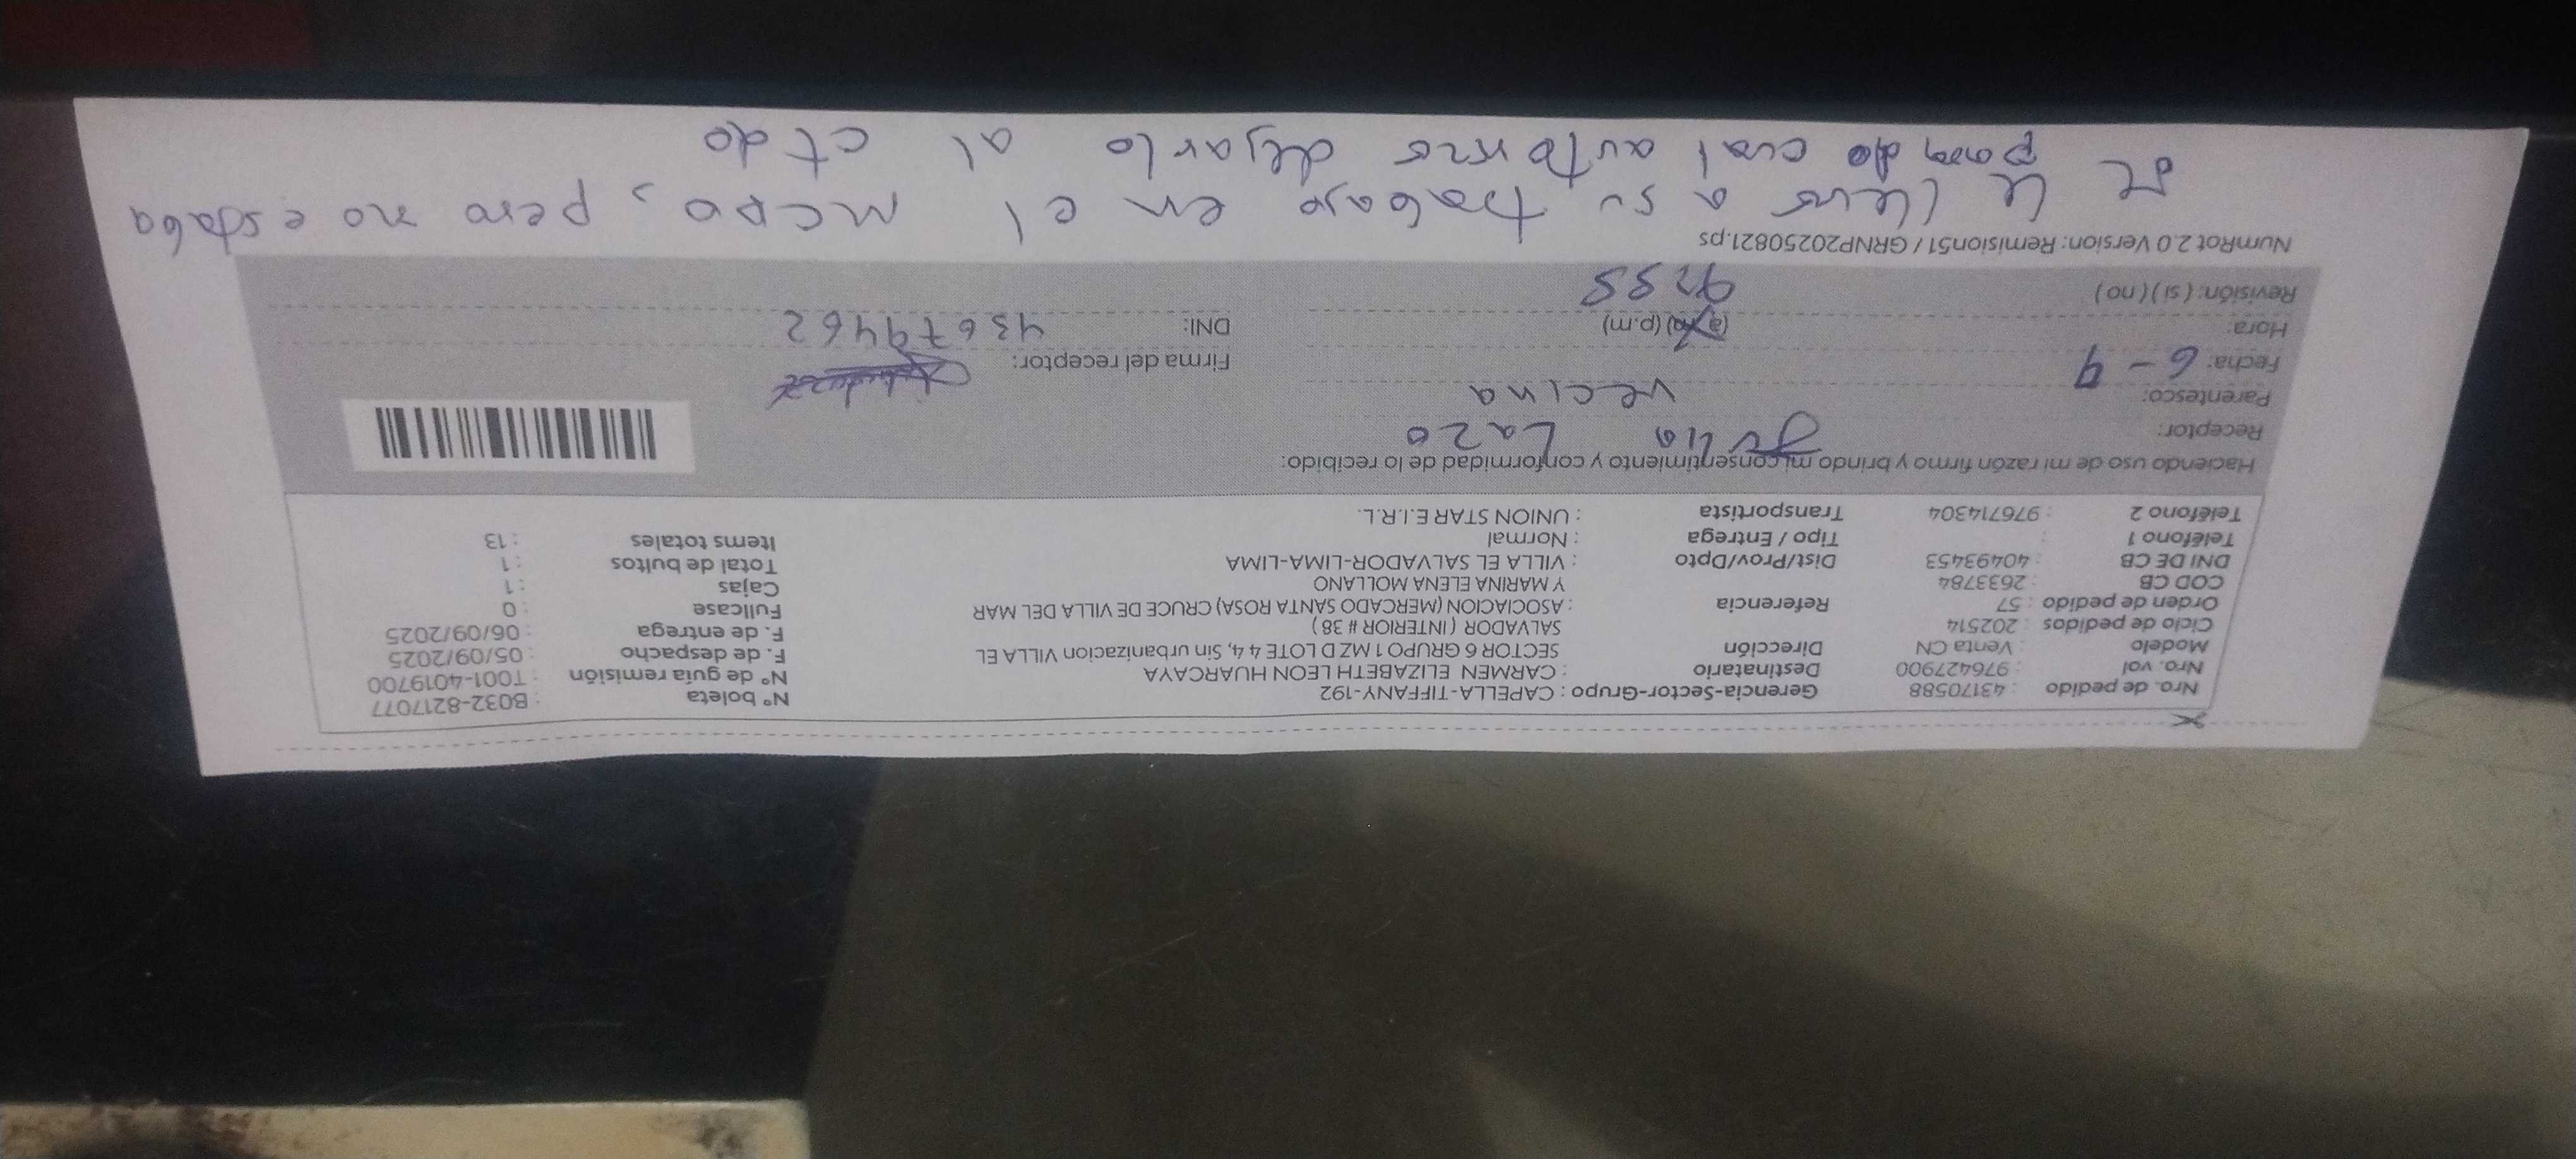 Nro. de pedido : 43170588 Gerencia-Sector-Grupo : CAPELLA-TIFFANY-192 N° boleta : B032-8217077
Nro. vol : 976427900 Destinatario : CARMEN ELIZABETH LEON HUARCAYA N° de guía remisión : T001-4019700
Modelo : Venta CN Dirección SECTOR 6 GRUPO 1 MZ D LOTE 4 4, Sin urbanizacion VILLA EL F. de despacho : 05/09/2025
Ciclo de pedidos : 202514 SALVADOR ( INTERIOR # 38 ) F. de entrega : 06/09/2025
Orden de pedido : 57 Referencia : ASOCIACION (MERCADO SANTA ROSA) CRUCE DE VILLA DEL MAR Fullcase : 0
COD CB : 2633784 Y MARINA ELENA MOLLANO Cajas : 1
DNI DE CB : 40493453 Dist/Prov/Dpto : VILLA EL SALVADOR-LIMA-LIMA Total de bultos : 1
Teléfono 1 : Tipo / Entrega : Normal Items totales : 13
Teléfono 2 : 976714304 Transportista : UNION STAR E.I.R.L.
Haciendo uso de mi razón firmo y brindo mi consentimiento y conformidad de lo recibido:
Receptor: Julia Lazo
Parentesco: vecina
Fecha: 6-9 Firma del receptor:
Hora: (a.m) (p.m) DNI: 43679462
Revisión: ( si ) ( no )
NumRot 2.0 Version: Remision51 / GRNP20250821.ps
le llevo a su trabajo en el mcdo, pero no estaba
cual autorizo dejarlo al